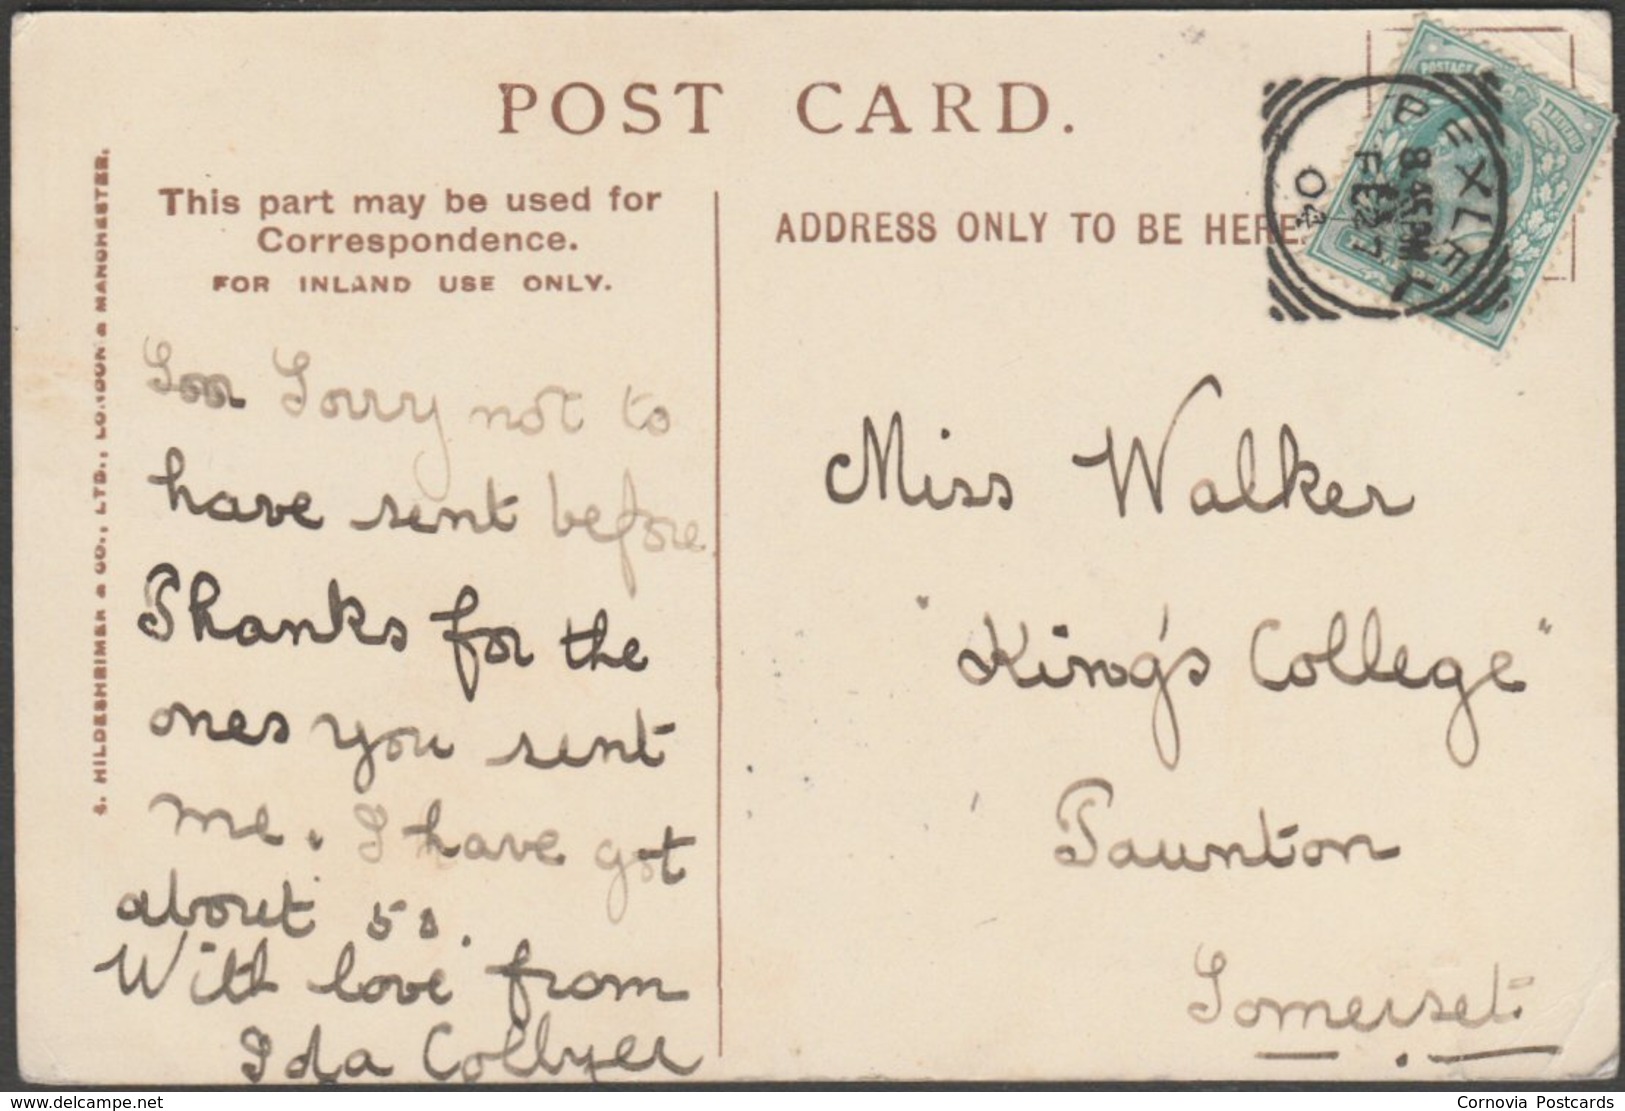 POST CARD.
This part may be used for
Correspondence.
FOR INLAND USE ONLY.
ADDRESS ONLY TO BE HERE
S. HILDESHEIMER & CO., LTD., LONDON & MANCHESTER.
POSTAGE
BEXLEY
8.45 PM
FE 27
04
Sorry not to
have sent before.
Thanks for the
ones you sent
me. I have got
about 50.
With love from
Ida Collyer
Miss Walker
"King's College"
Taunton
Somerset.
www.delcampe.net
Cornovia Postcards